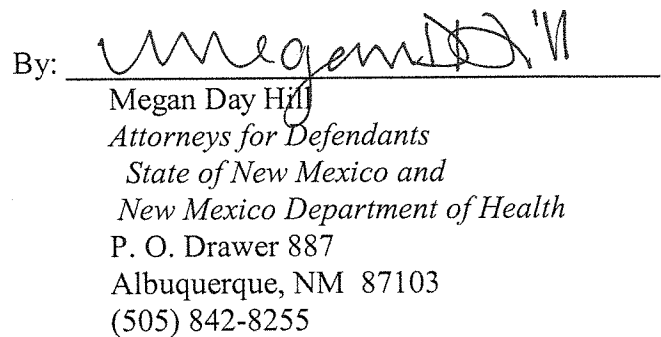 By: Megan D Hill
Megan Day Hill
Attorneys for Defendants
State of New Mexico and
New Mexico Department of Health
P. O. Drawer 887
Albuquerque, NM 87103
(505) 842-8255